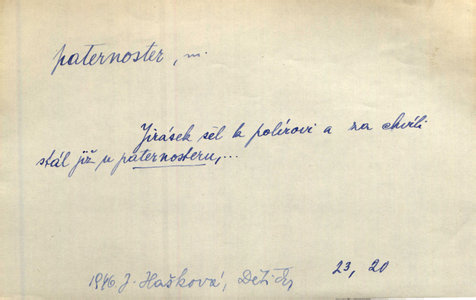 paternoster, m.
Jirásek šel k polírovi a na chvíli
stál již u paternosteru,...
23, 20
1946 J. Hašková, Děti